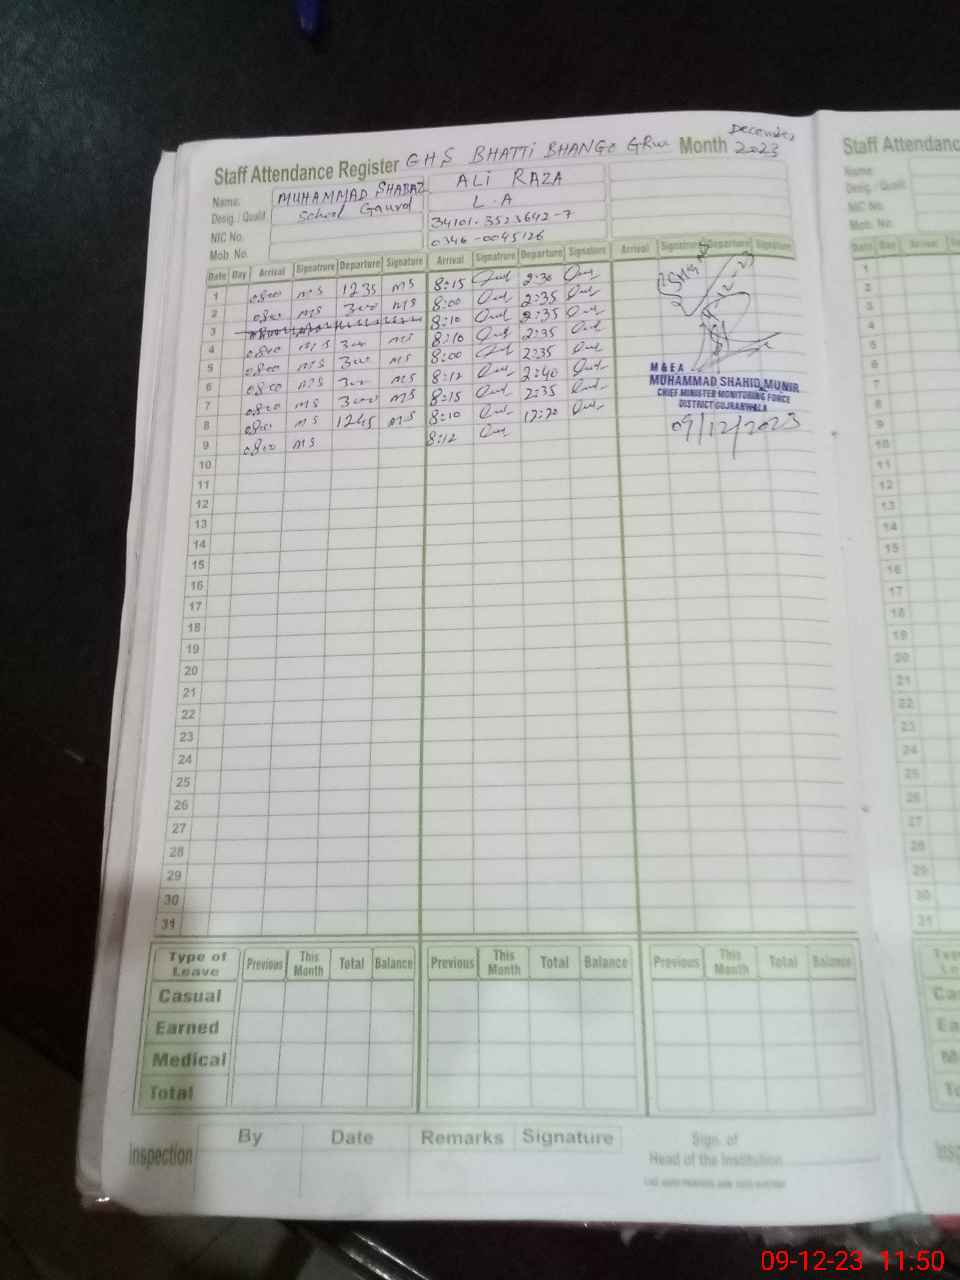 Staff Attendance Register GHS BHATTI BHANGO GRW Month December 2023
Staff Attendance
Name: MUHAMMAD SHABAZ ALI RAZA
Desig. / Qualif. School Gaurd L.A
NIC No. 34101-3523642-7
Mob. No. 0346-0045126
Name:
Desig. / Qualif.
NIC No.
Mob. No.
Date Day Arrival Signature Departure Signature Arrival Signature Departure Signature Arrival Signature Departure Signature
Date Day Arrival
1 0800 MS 1235 MS 8:15 2:30
2 0800 MS 300 MS 8:00 2:35
3 8:10 2:35
4 0800 MS 300 MS 8:10 2:35
5 0800 MS 300 MS 8:00 2:35
6 0800 MS 300 MS 8:12 2:40
7 0800 MS 300 MS 8:15 2:35
8 0800 MS 1245 MS 8:10 12:20
9 0800 MS 8:12
M & E A
MUHAMMAD SHAHID MUNIR
CHIEF MINISTER MONITORING FORCE
DISTRICT GUJRANWALA
09/12/2023
10
11
12
13
14
15
16
17
18
19
20
21
22
23
24
25
26
27
28
29
30
31
1
2
3
4
5
6
7
8
9
10
11
12
13
14
15
16
17
18
19
20
21
22
23
24
25
26
27
28
29
30
31
Type of Leave Previous This Month Total Balance Previous This Month Total Balance Previous This Month Total Balance
Casual
Earned
Medical
Total
Inspection By Date Remarks Signature
Sign. of
Head of the Institution
09-12-23 11:50